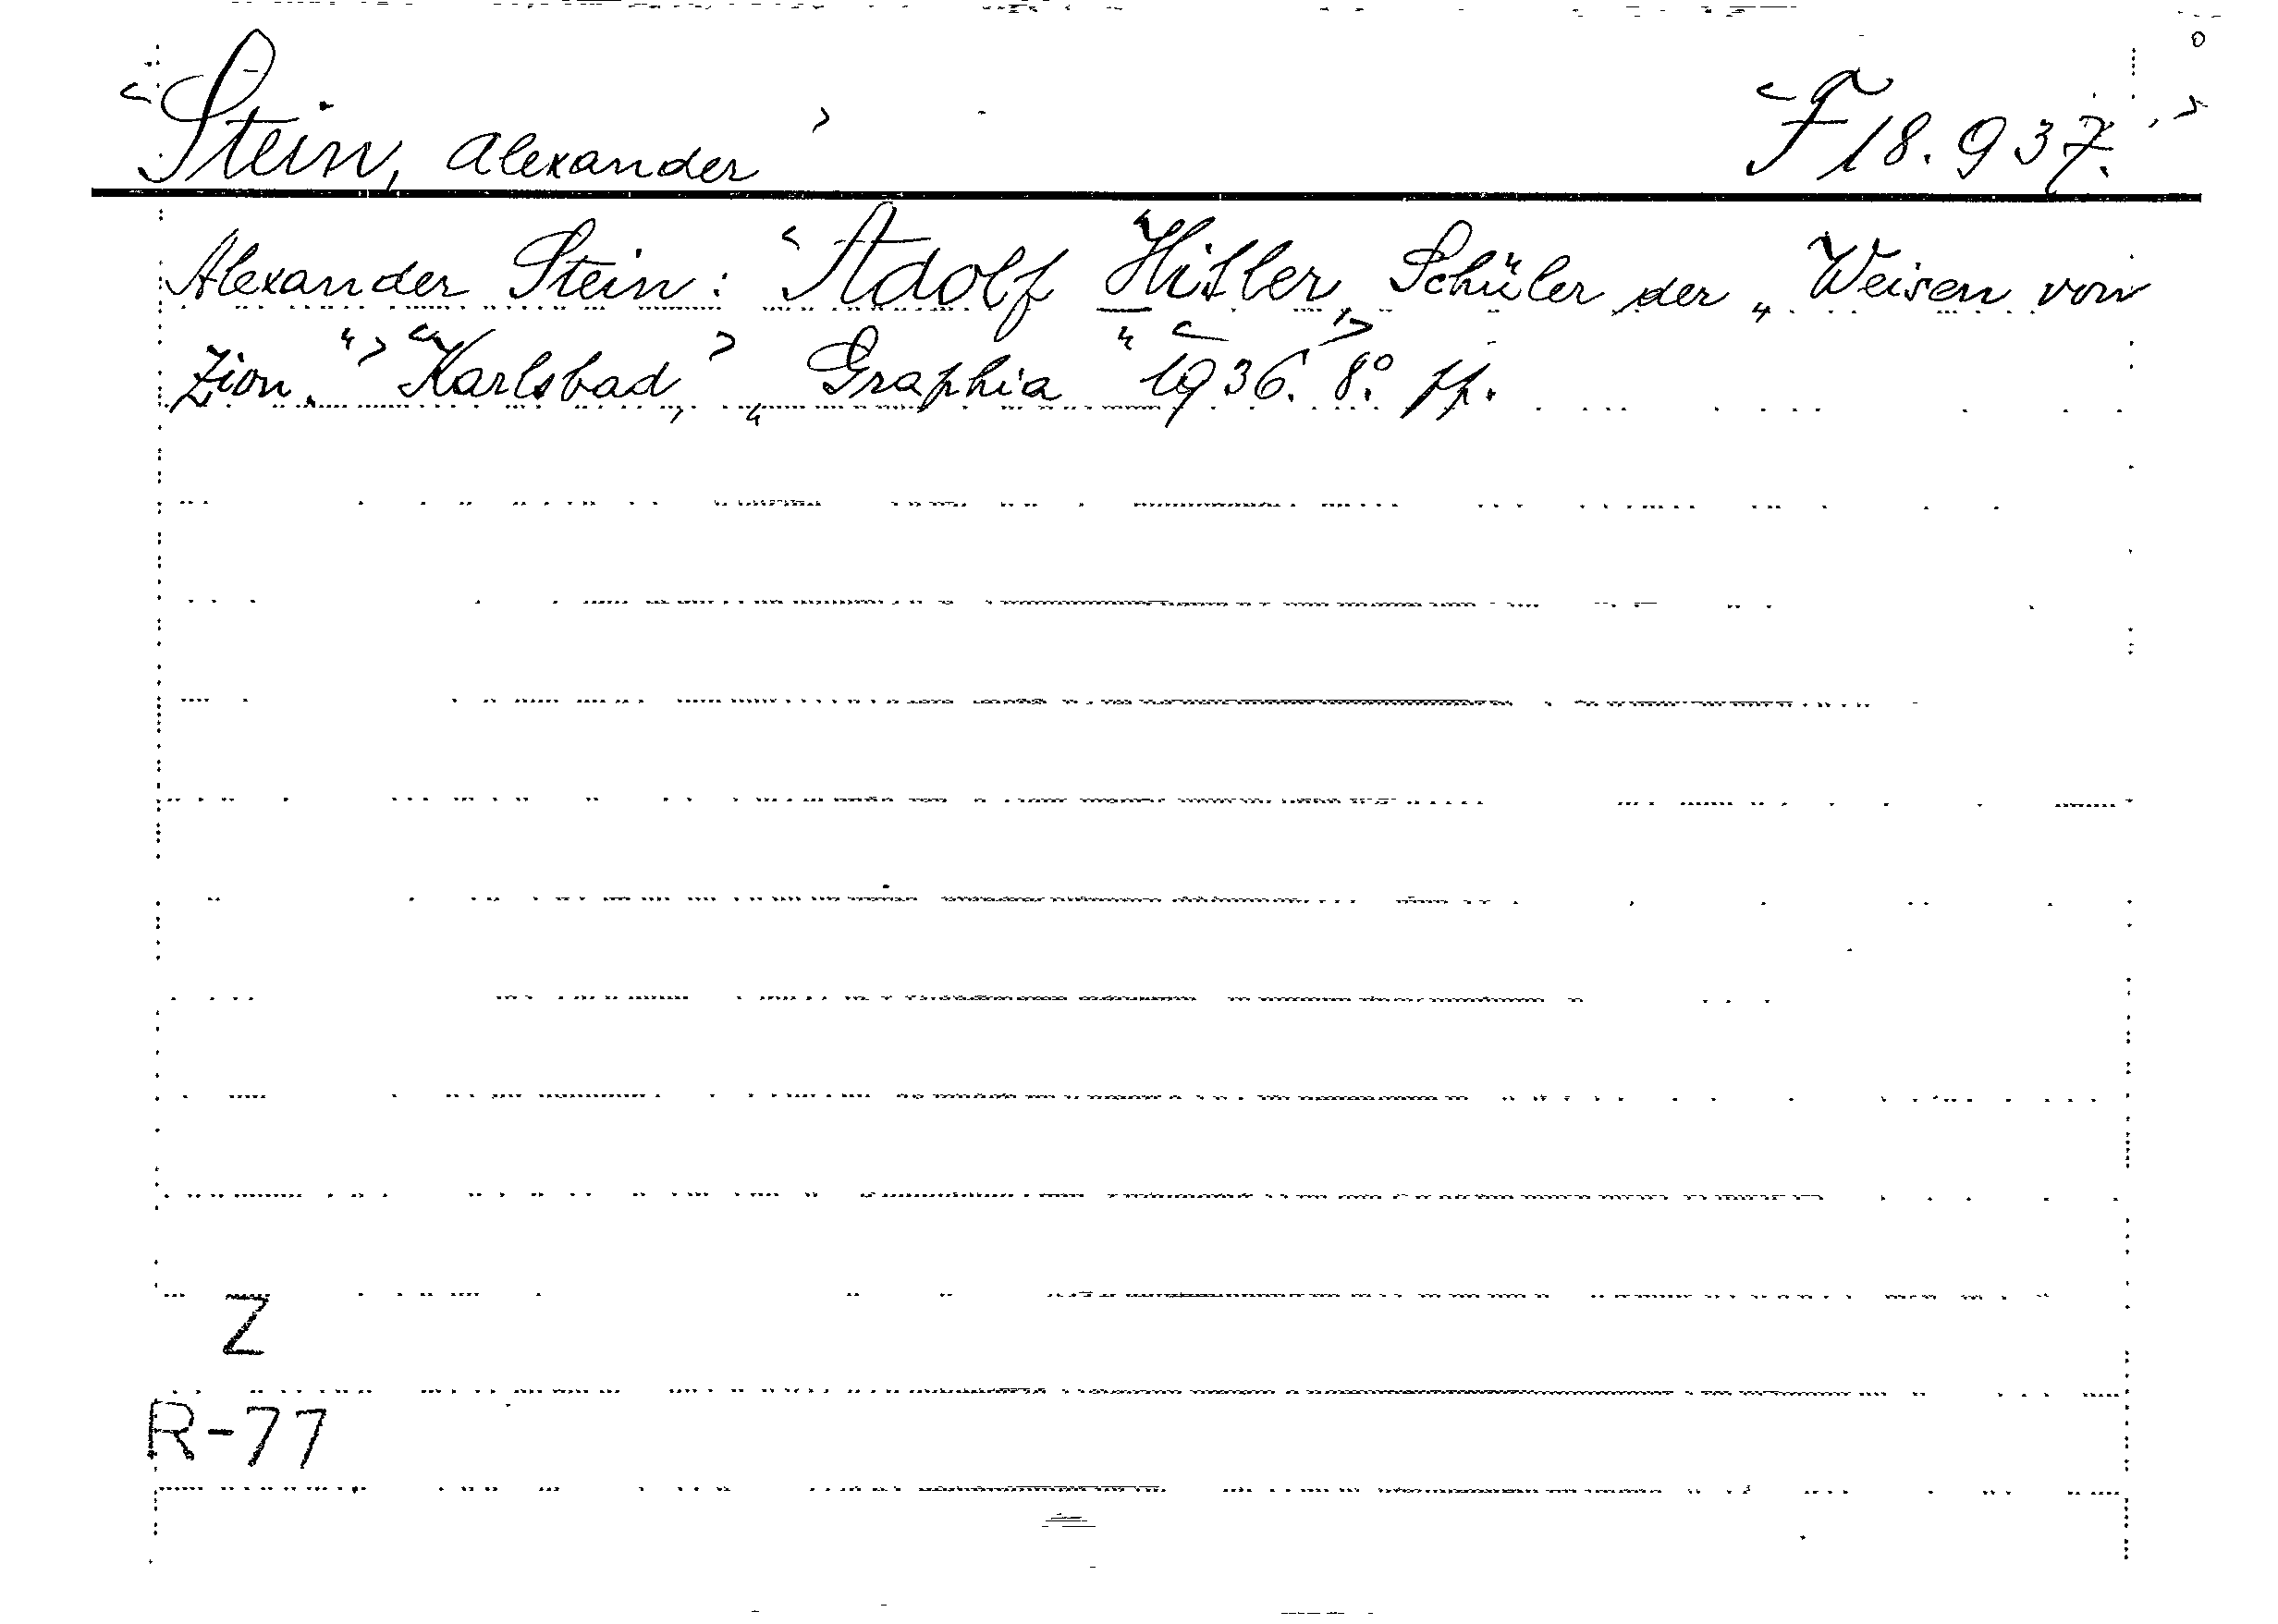 <Stein, Alexander> <F 18.937.>
Alexander Stein: <Adolf Hitler, Schüler der „Weisen von
Zion.“> <Karlsbad,> „Graphia“ <1936.> 8.°
Z
R-77